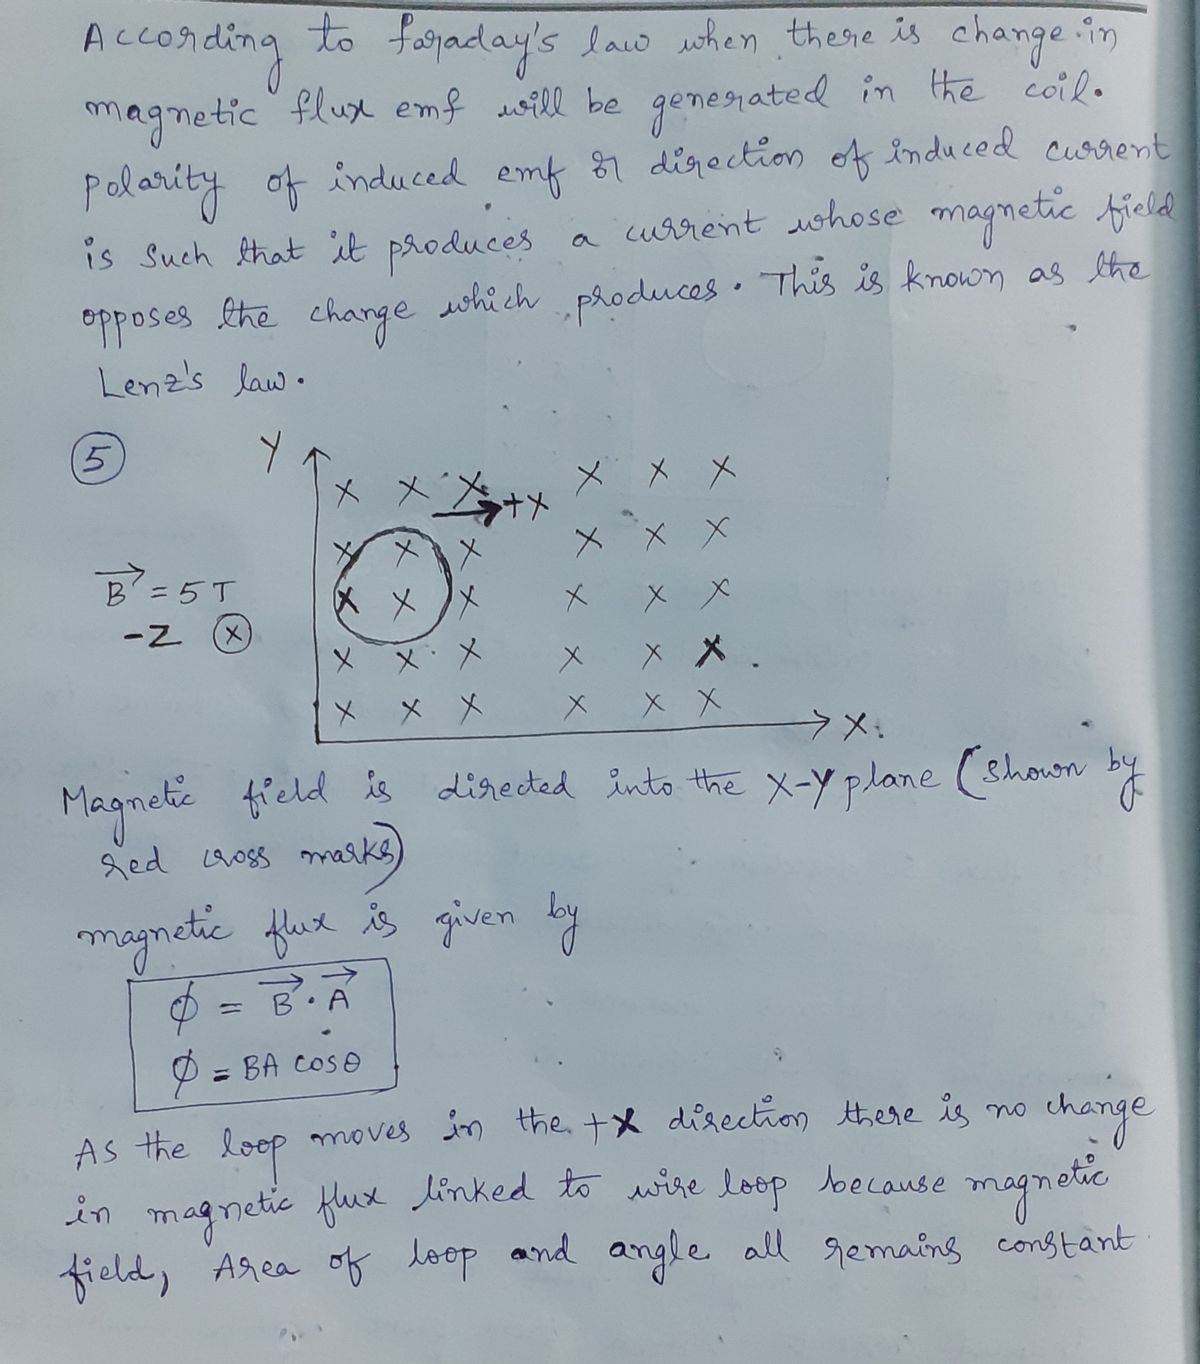 According to faraday's law when there is change in
magnetic flux emf will be generated in the coil.
polarity of induced emf or direction of induced current
is such that it produces a current whose magnetic field
opposes the change which produces. This is known as the
Lenz's law.
5
Y
X X X X X X
+X
X X X X X X
X X X X X X
B = 5 T
-Z X
X X X X X X
X X X X X X
X
Magnetic field is directed into the X-Y plane (shown by
red cross marks)
magnetic flux is given by
ϕ = B⃗ · A⃗
ϕ = BA cosθ
As the loop moves in the +X direction there is no change
in magnetic flux linked to wire loop because magnetic
field, Area of loop and angle all remains constant